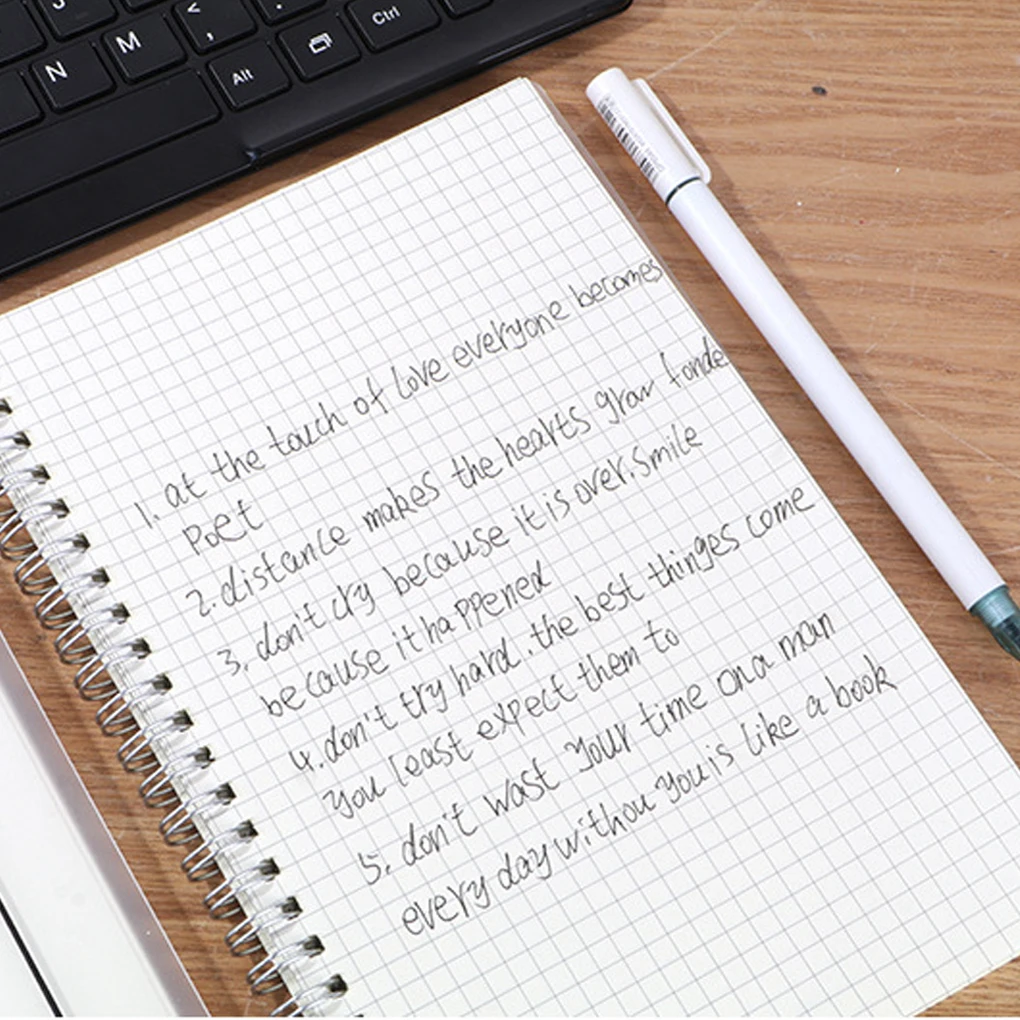 N
M
<
,
Alt
Ctrl
1. at the touch of love everyone becomes
poet
2. distance makes the hearts grow fonde
3. don't cry because it is over. smile
because it happened
4. don't try hard. the best thinges come
you least expect them to
5. don't wast your time on a man
every day withou you is like a book